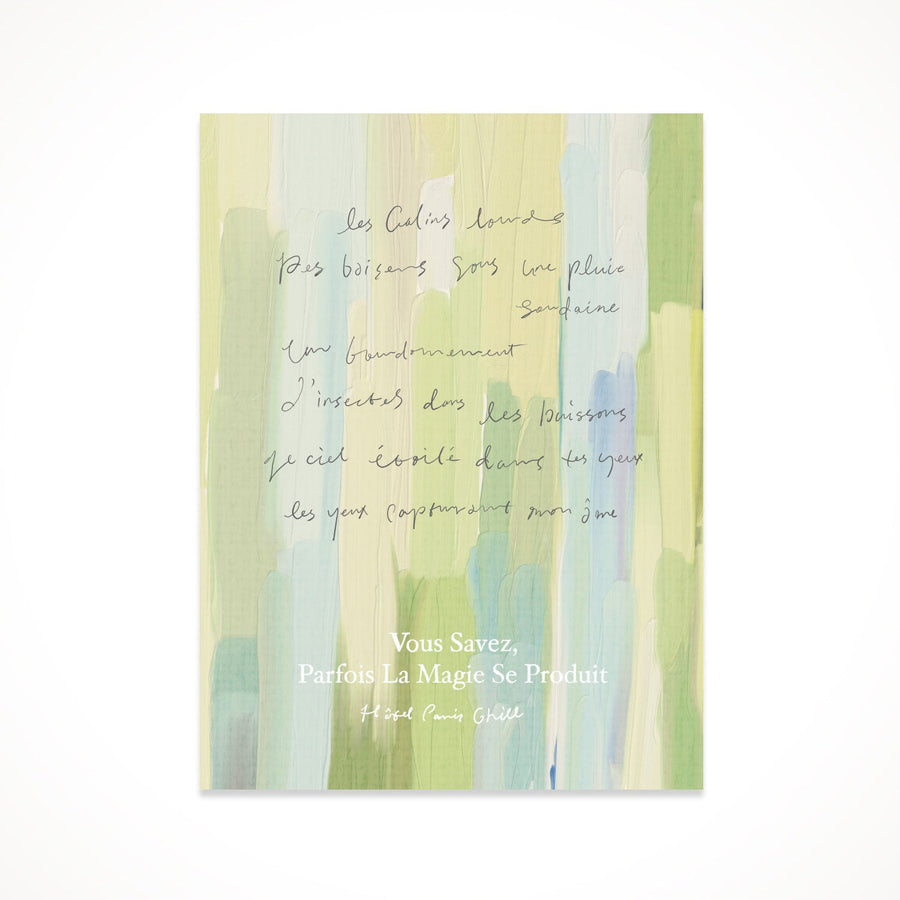 les Câlins lourds
Des baisers sous une pluie
soudaine
Un bourdonnement
d'insectes dans les buissons
le ciel étoilé dans tes yeux
les yeux capturant mon âme
Vous Savez,
Parfois La Magie Se Produit
Hôtel Paris Chill